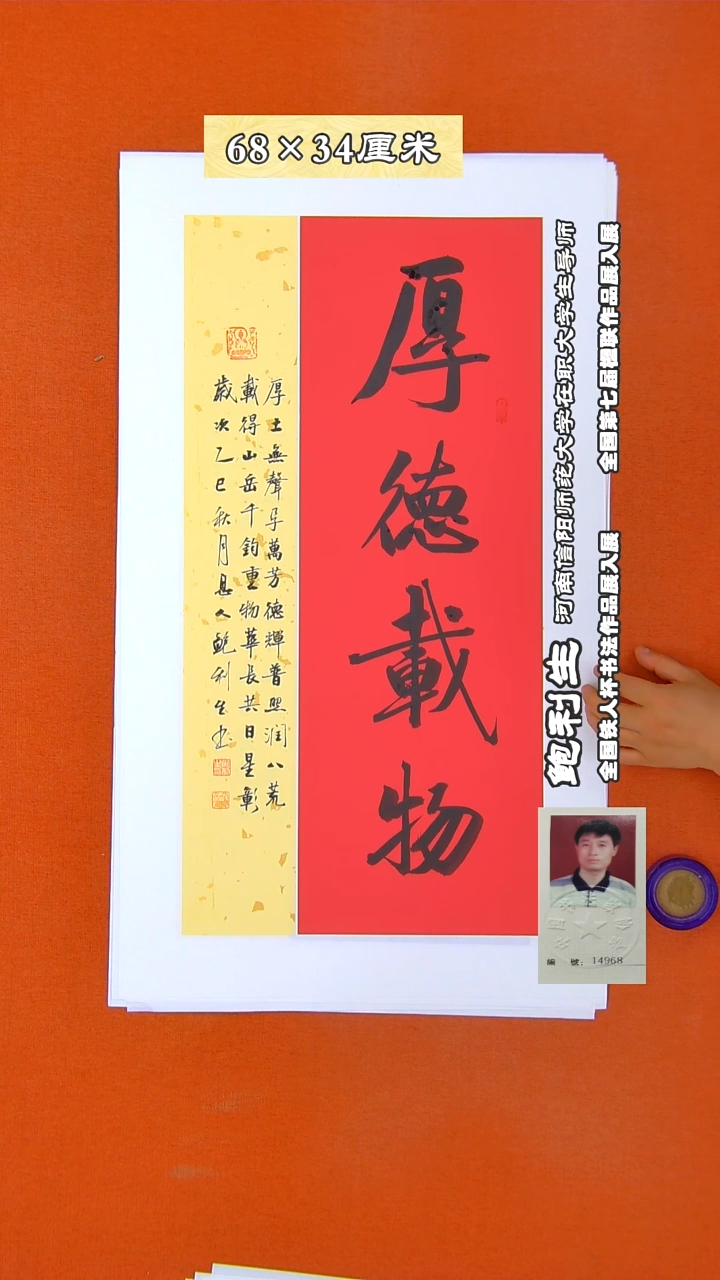 68×34厘米
厚德載物
厚土無聲孕萬芳德輝普照润八荒
載得山岳千鈞重物華長共日星彰
歲次乙巳秋月息人鲍利生书
鲍利生
河南信阳师范大学在职大学生导师
全国第七届楹联作品展入展
全国铁人杯书法作品展入展
編號：14968